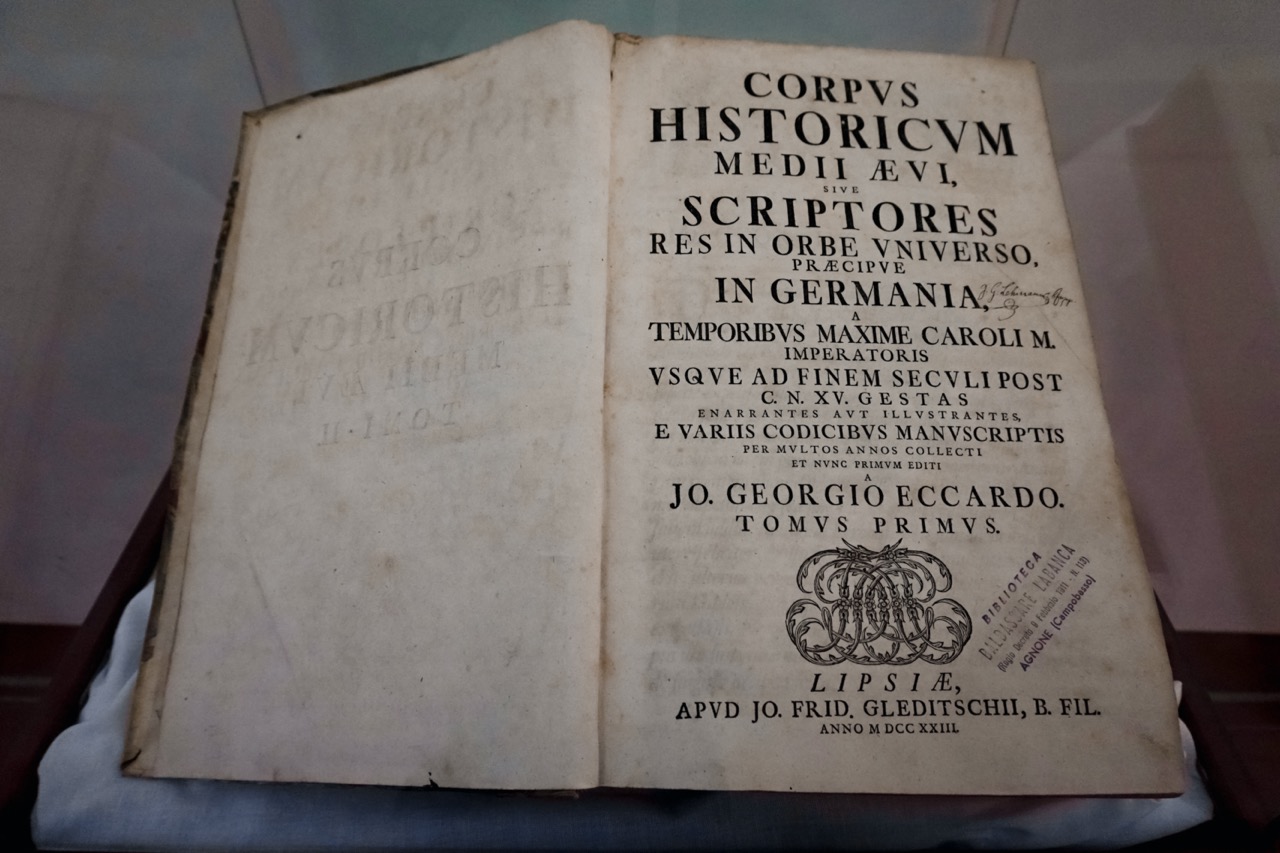 CORPVS
HISTORICVM
MEDII ÆVI,
SIVE
SCRIPTORES
RES IN ORBE VNIVERSO,
PRÆCIPVE
IN GERMANIA,
A
TEMPORIBVS MAXIME CAROLI M.
IMPERATORIS
VSQVE AD FINEM SECVLI POST
C. N. XV. GESTAS
ENARRANTES AVT ILLVSTRANTES,
E VARIIS CODICIBVS MANVSCRIPTIS
PER MVLTOS ANNOS COLLECTI
ET NVNC PRIMVM EDITI
A
JO. GEORGIO ECCARDO.
TOMVS PRIMVS.
BIBLIOTECA
BALDASSARE LABANCA
AGNONE (Campobasso)
LIPSIÆ,
APVD JO. FRID. GLEDITSCHII, B. FIL.
ANNO M DCC XXIII.